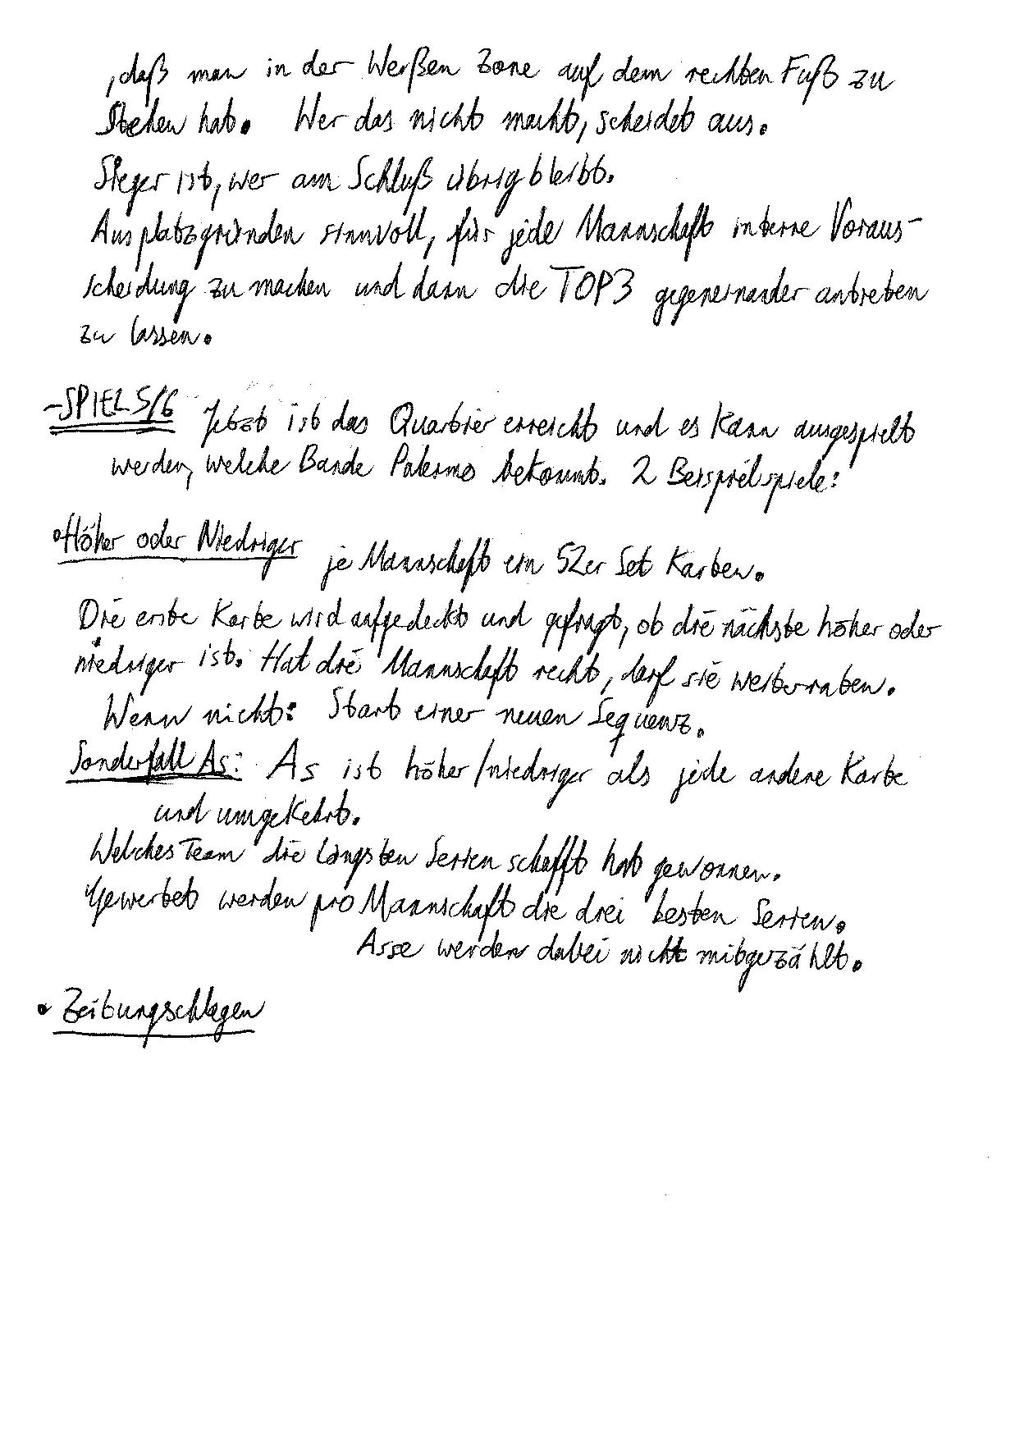 , daß man in der Weißen Zone auf dem rechten Fuß zu
Stehen hat. Wer das nicht macht, scheidet aus.
Sieger ist, wer am Schluß übrig bleibt.
Aus platzgründen sinnvoll, für jede Mannschaft interne Voraus-
scheidung zu machen und dann die TOP3 gegeneinander antreten
zu lassen.
-SPIEL 5/6 Jetzt ist das Quartier erreicht und es Kann ausgespielt
werden, welche Bande Palermo bekommt. 2 Beispielspiele:
• Höher oder Niedriger je Mannschaft ein 52er Set Karten.
Die erste Karte wird aufgedeckt und gefragt, ob die nächste höher oder
niedriger ist. Hat die Mannschaft recht, darf sie weiterraten.
Wenn nicht: Start einer neuen Sequenz.
Sonderfall As: As ist höher/niedriger als jede andere Karte
und umgekehrt.
Welches Team die längsten Serien schafft hat gewonnen.
Gewertet werden pro Mannschaft die drei besten Serien.
Asse werden dabei nicht mitgezählt.
• Zeitungschlagen